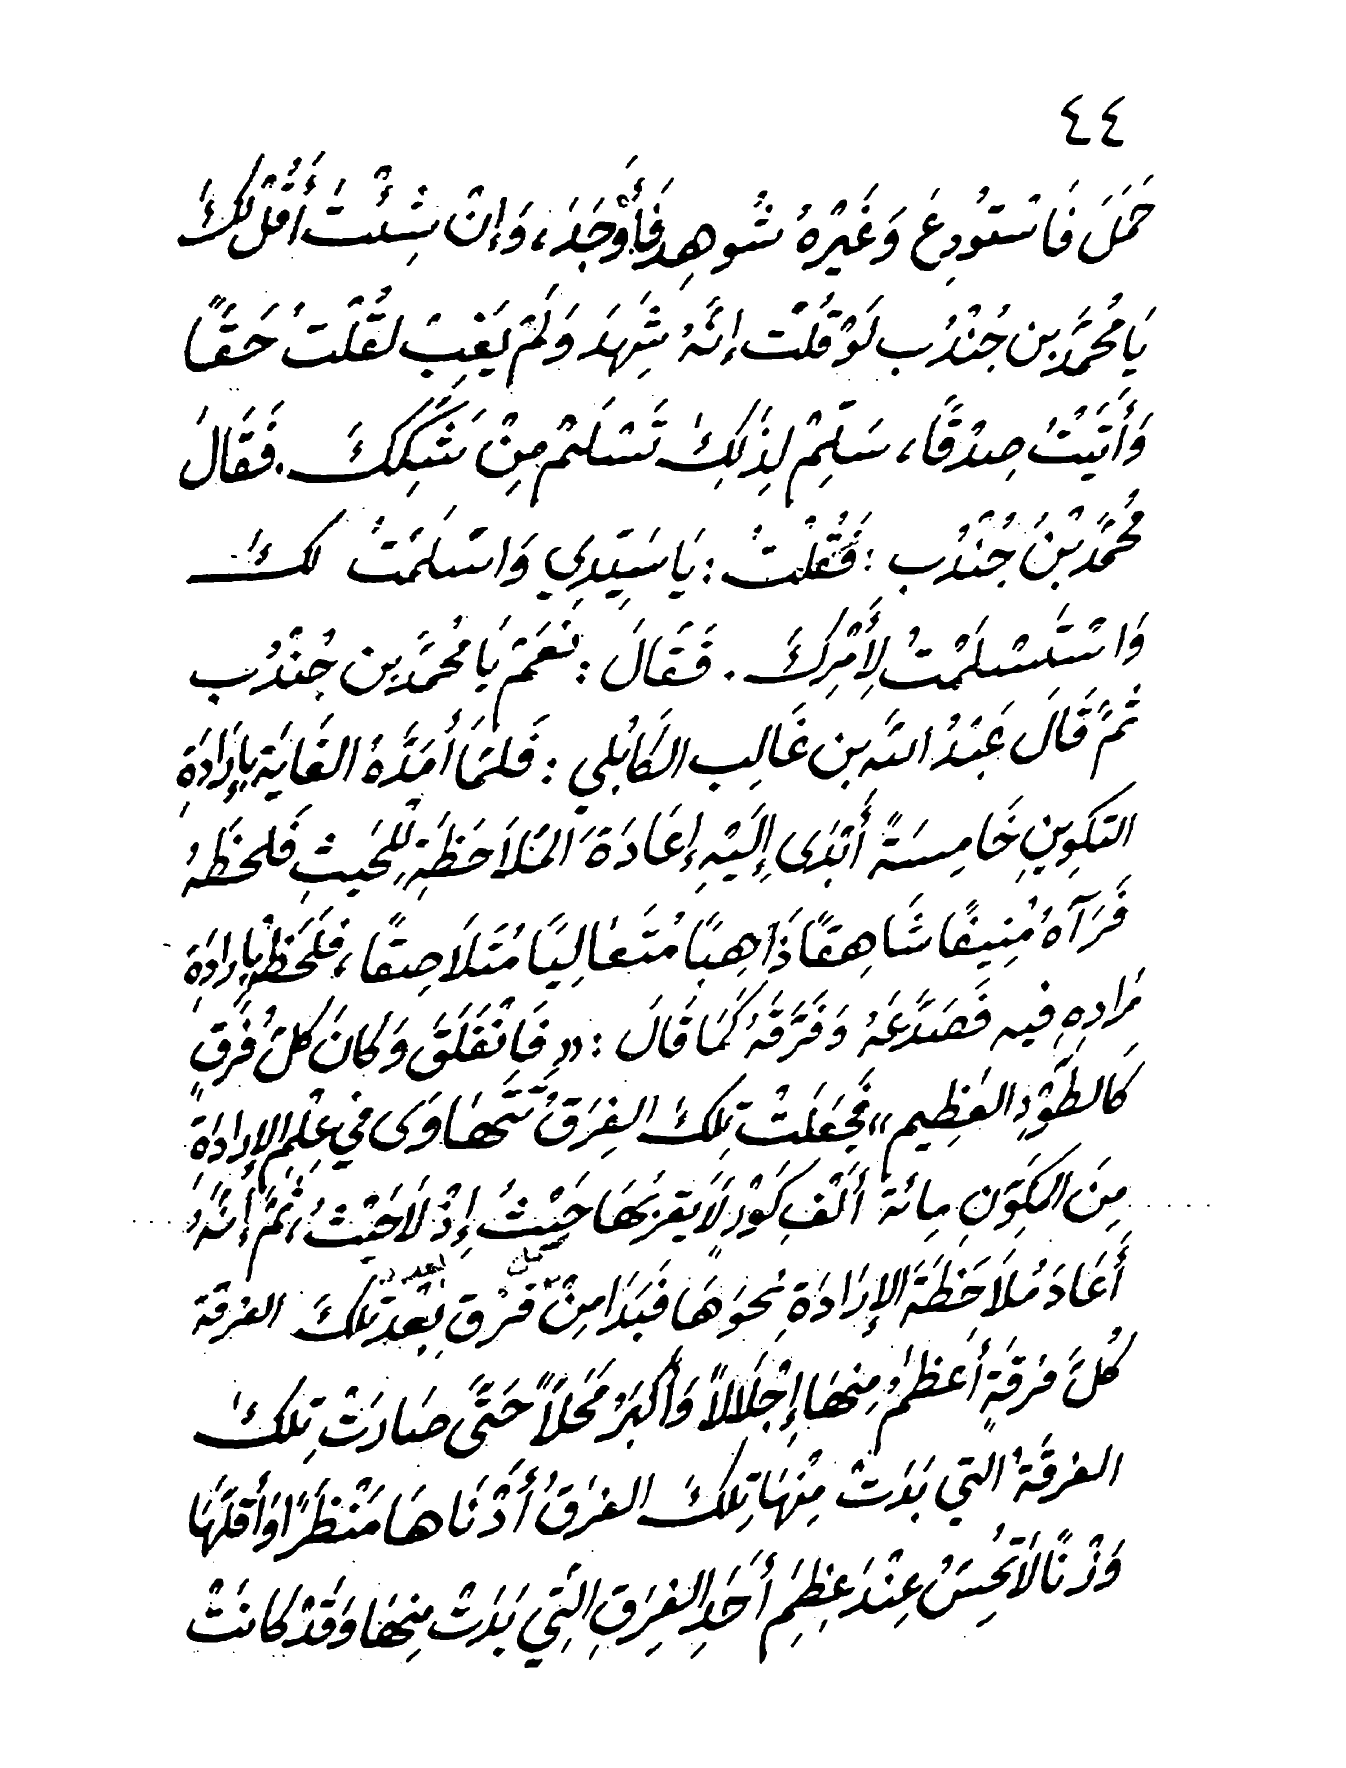 ٤٤
حَمَلَ فَاسْتَوُدِعَ وَغَيْرُهُ شُوهِدَ فَأُوْجَدَ، وَإِنْ شِئْتَ أَقُلْ لَكَ
يَا مُحَمَّدَ بن جُنْدُب لَوْ قُلْتَ إِنَّهُ شَهِدَ وَلَمْ يَغِبْ لَقُلْتَ حَقًّا
وَأَتَيْتُ صِدْقًا، سَلِّمْ لِذَلِكَ تَسْلَمْ مِنْ شَكِّكَ. فَقَالَ
مُحَمَّدُ بْنُ جُنْدُب : فَقُلْتُ : يَا سَيِّدِي وَاسْلَمْتُ لَكَ
وَاسْتَسْلَمْتُ لِأَمْرِكَ . فَقَالَ : نَعَمْ يَا مُحَمَّدَ بن جُنْدُب
ثُمَّ قَالَ عَبْدُ اللَّه بن غَالِب الكَابُلِي : فَلَمَّا أَمَدَّهُ الغَايَةَ بِإِرَادَةِ
التكوينِ خَامِسَةً أَبْدَى إِلَيْهِ إِعَادَةَ المُلَاحَظَةِ لِلحَيثِ فَلَحَظَهُ
فَرَآهُ مُنِيفًا شَاهِقًا ذَاهِبًا مُتَعَالِيًا مُتَلَاصِقًا، فَلَحَظَهُ بِإِرَادَةِ
مُرَادِهِ فيه فَصَدَّعَهُ وَفَرَّقَهُ كَمَا قَالَ : «فَانْفَلَقَ وَكَانَ كُلُّ فُرَقٍ
كَالطَّوْدِ العَظِيمِ» فَجَعَلَتْ تِلكَ الفِرَقُ تَتَهَاوَى في عِلْمِ الإرادَة
مِنَ المكَوِّنِ مِائة أَلْفِ كَوْر لَا يَقربُهَا حَيْثُ إِذْ لَا حَيْثُ، ثُمَّ أَنَّهُ
أَعَادَ مُلَاحَظَةَ الإرَادَةِ نِحوَهَا فَبَدَا مِنْ فرْق بَعْدَ تِلكَ الفرقة
كُلُّ فرقَةٍ أَعظَمُ مِنهَا إِجْلَالاً وَأَكبَرُ مَحَلاً حَتَّى صَارَتْ تِلكَ
الفرقَةُ التي بَدَتْ مِنْهَا تِلكَ الفرَقُ أَدْنَاهَا مَنْظَرًا وَأَقلَّهَا
وَزْنًا لَا تحِسُ عِنْدَ عِظَمِ أَحَدِ الفِرَقِ الَّتِي بَدَتْ مِنهَا وَقَدْ كَانَتْ